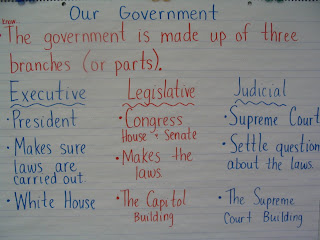 Our Government
know
• The government is made up of three
branches (or parts).
Executive
• President
• Makes sure
laws are
carried out.
• White House
Legislative
• Congress
House + Senate
• Makes the
laws
• The Capitol
Building
Judicial
• Supreme Court
• Settle question
about the laws.
• The Supreme
Court Building